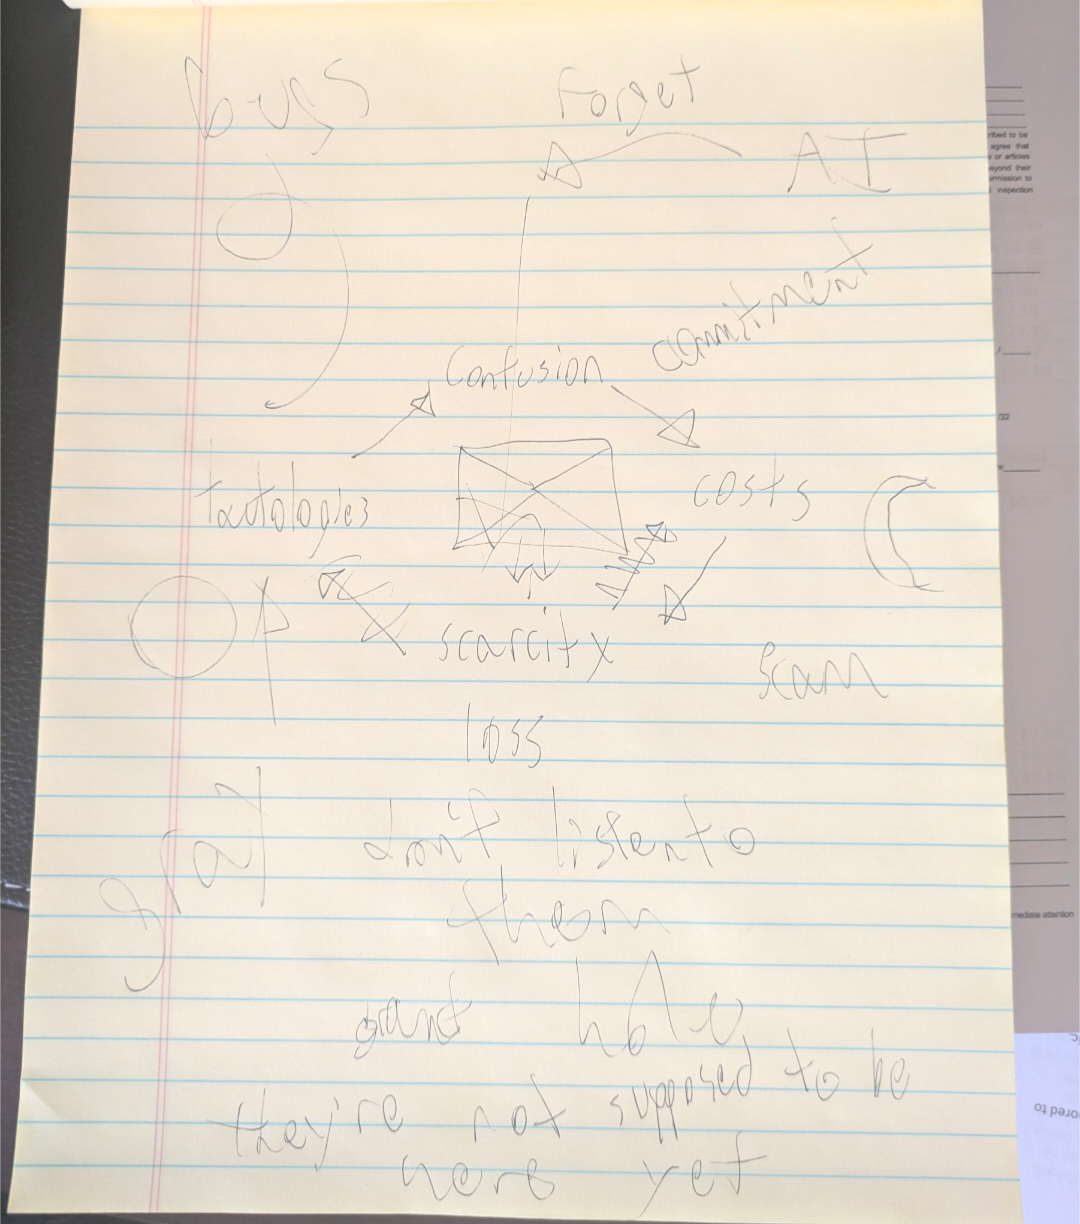 bugs
Forget
AI
commitment
Confusion
tautologies
costs
scarcity
scam
loss
gray
don't listen to
them
giant hole
they're not supposed to be
here yet
ribed to be
agree that
s or articles
eyond their
ermission to
inspection
/32
mediate attention
ored to